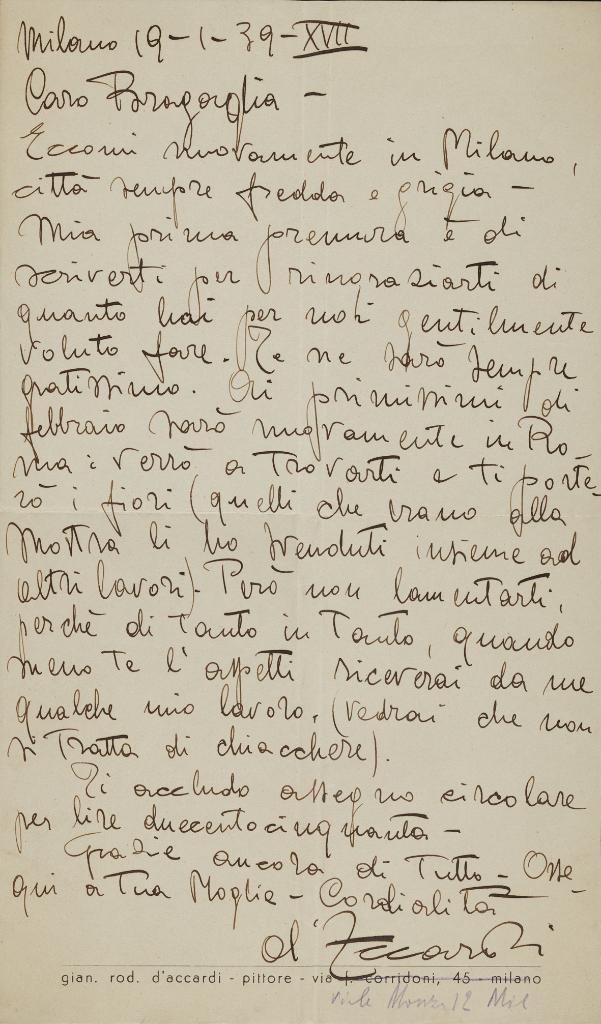 Milano 19-1-39-XVII
Caro Bragaglia -
Eccomi nuovamente in Milano,
città sempre fredda e grigia -
Mia prima premura è di
scriverti per ringraziarti di
quanto hai per noi gentilmente
voluto fare. Te ne sarò sempre
gratissimo. Ai primissimi di
febbraio sarò nuovamente in Ro-
ma: verrò a trovarti e ti porte-
rò i fiori (quelli che erano alla
mostra li ho venduti insieme ad
altri lavori). Però non lamentarti,
perchè di tanto in tanto, quando
meno te l'aspetti riceverai da me
qualche mio lavoro. (vedrai che non
si tratta di chiacchere).
Ti accludo assegno circolare
per lire duecentocinquanta -
Grazie ancora di tutto - Osse-
qui a tua Moglie - Cordialità
d'Accardi
gian. rod. d'accardi - pittore - via f. corridoni, 45 - milano
viale Monza 12 Mil